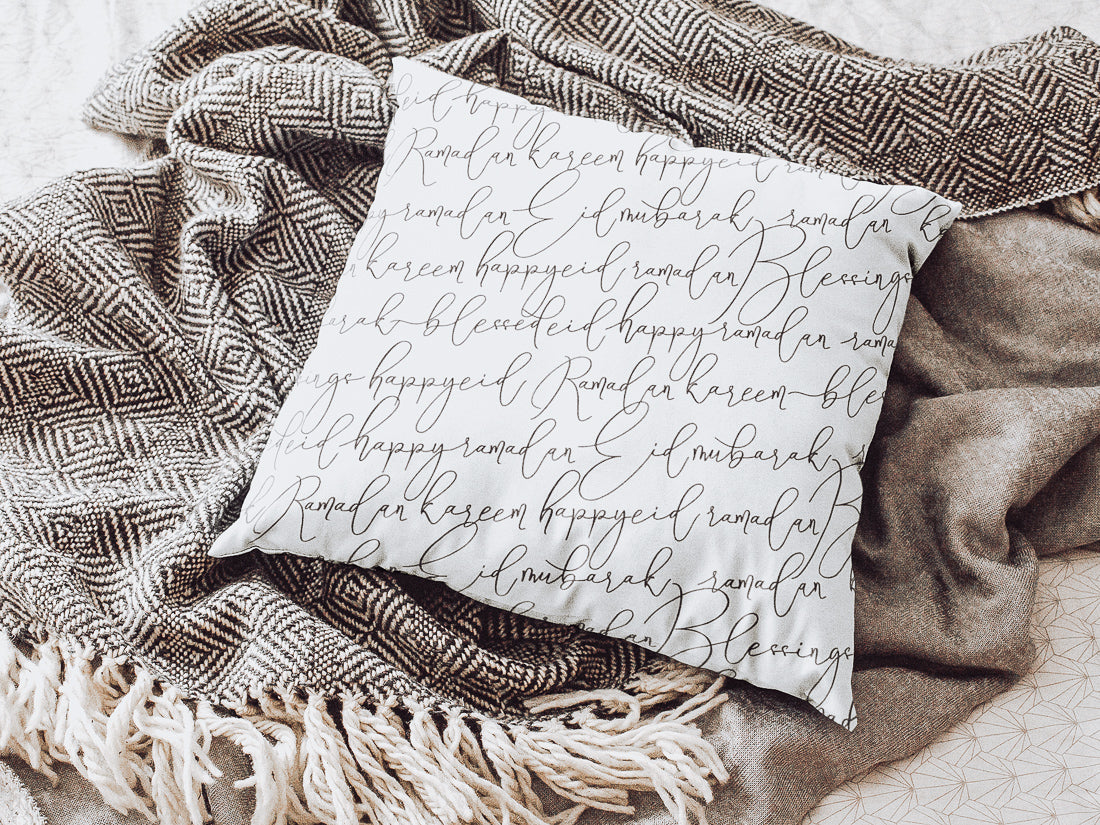 eid happy
Ramadan kareem happyeid ramad
py ramadan Eid mubarak ramadan
kareem happyeid ramadan Blessings
arak blessedeid happy ramadan rama
ings happyeid Ramadan kareem ble
deid happy ramadan Eid mubarak
Ramadan kareem happyeid ramadan B
Eid mubarak ramadan
dan Blessings